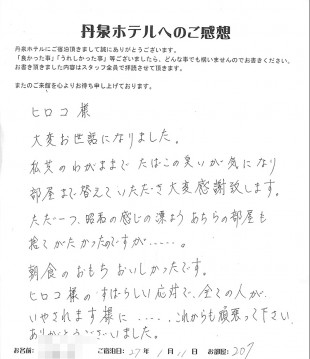 丹泉ホテルへのご感想
丹泉ホテルにご宿泊頂きまして誠にありがとうございます。
「良かった事」「うれしかった事」等ございましたら、どんな事でも構いませんのでお書きください。
お書き頂きました内容はスタッフ全員で拝読させて頂きます。
またのご来館を心よりお待ち申し上げております。
ヒロコ様
大変お世話になりました。
私共のわがままで たばこの臭いが気になり
部屋まで替えていただき大変感謝致します。
ただ一つ、昭和の感じの漂よう あちらの部屋も
捨てがたかったのですが・・・・・。
朝食のおもち おいしかったです。
ヒロコ様のすばらしい応対で、全ての人が
いやされます様に ・・・・・これからも頑張って下さい
ありがとうございました。
お名前: ご宿泊日: 27年 1月11日 お部屋: 207